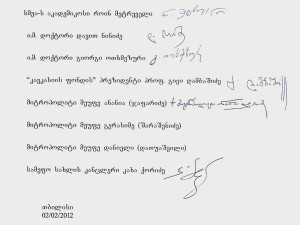 სმვა-ს აკადემიკოსი როინ მეტრეველი
ი.მ. დოქტორი დავით ნინიძე
ი.მ. დოქტორი გიორგი ოთხმეზური
"კავკასიის ფონდის" პრეზიდენტი პროფ. გივი ღამბაშიძე
მიტროპოლიტი მეუფე ანანია (ჯაფარიძე)
მიტროპოლიტი მეუფე გერასიმე (შარაშენიძე)
მიტროპოლიტი მეუფე დანიელი (დათუაშვილი)
სამეფო სახლის კანცლერი კახა ჭორიძე
თბილისი
02/02/2012